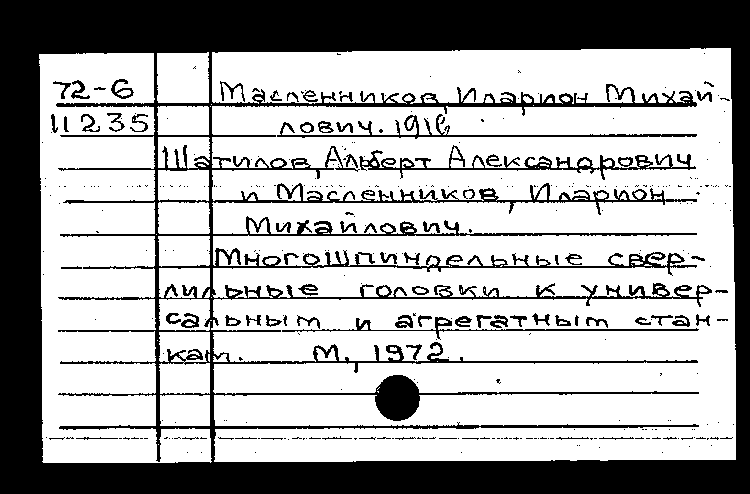 72-6 Масленников, Иларион Михай-
11235 лович. 1916
Шатилов, Альберт Александрович
и Масленников, Иларион
Михайлович.
Многошпиндельные свер-
лильные головки к универ-
сальным и агрегатным стан-
кам. М., 1972.